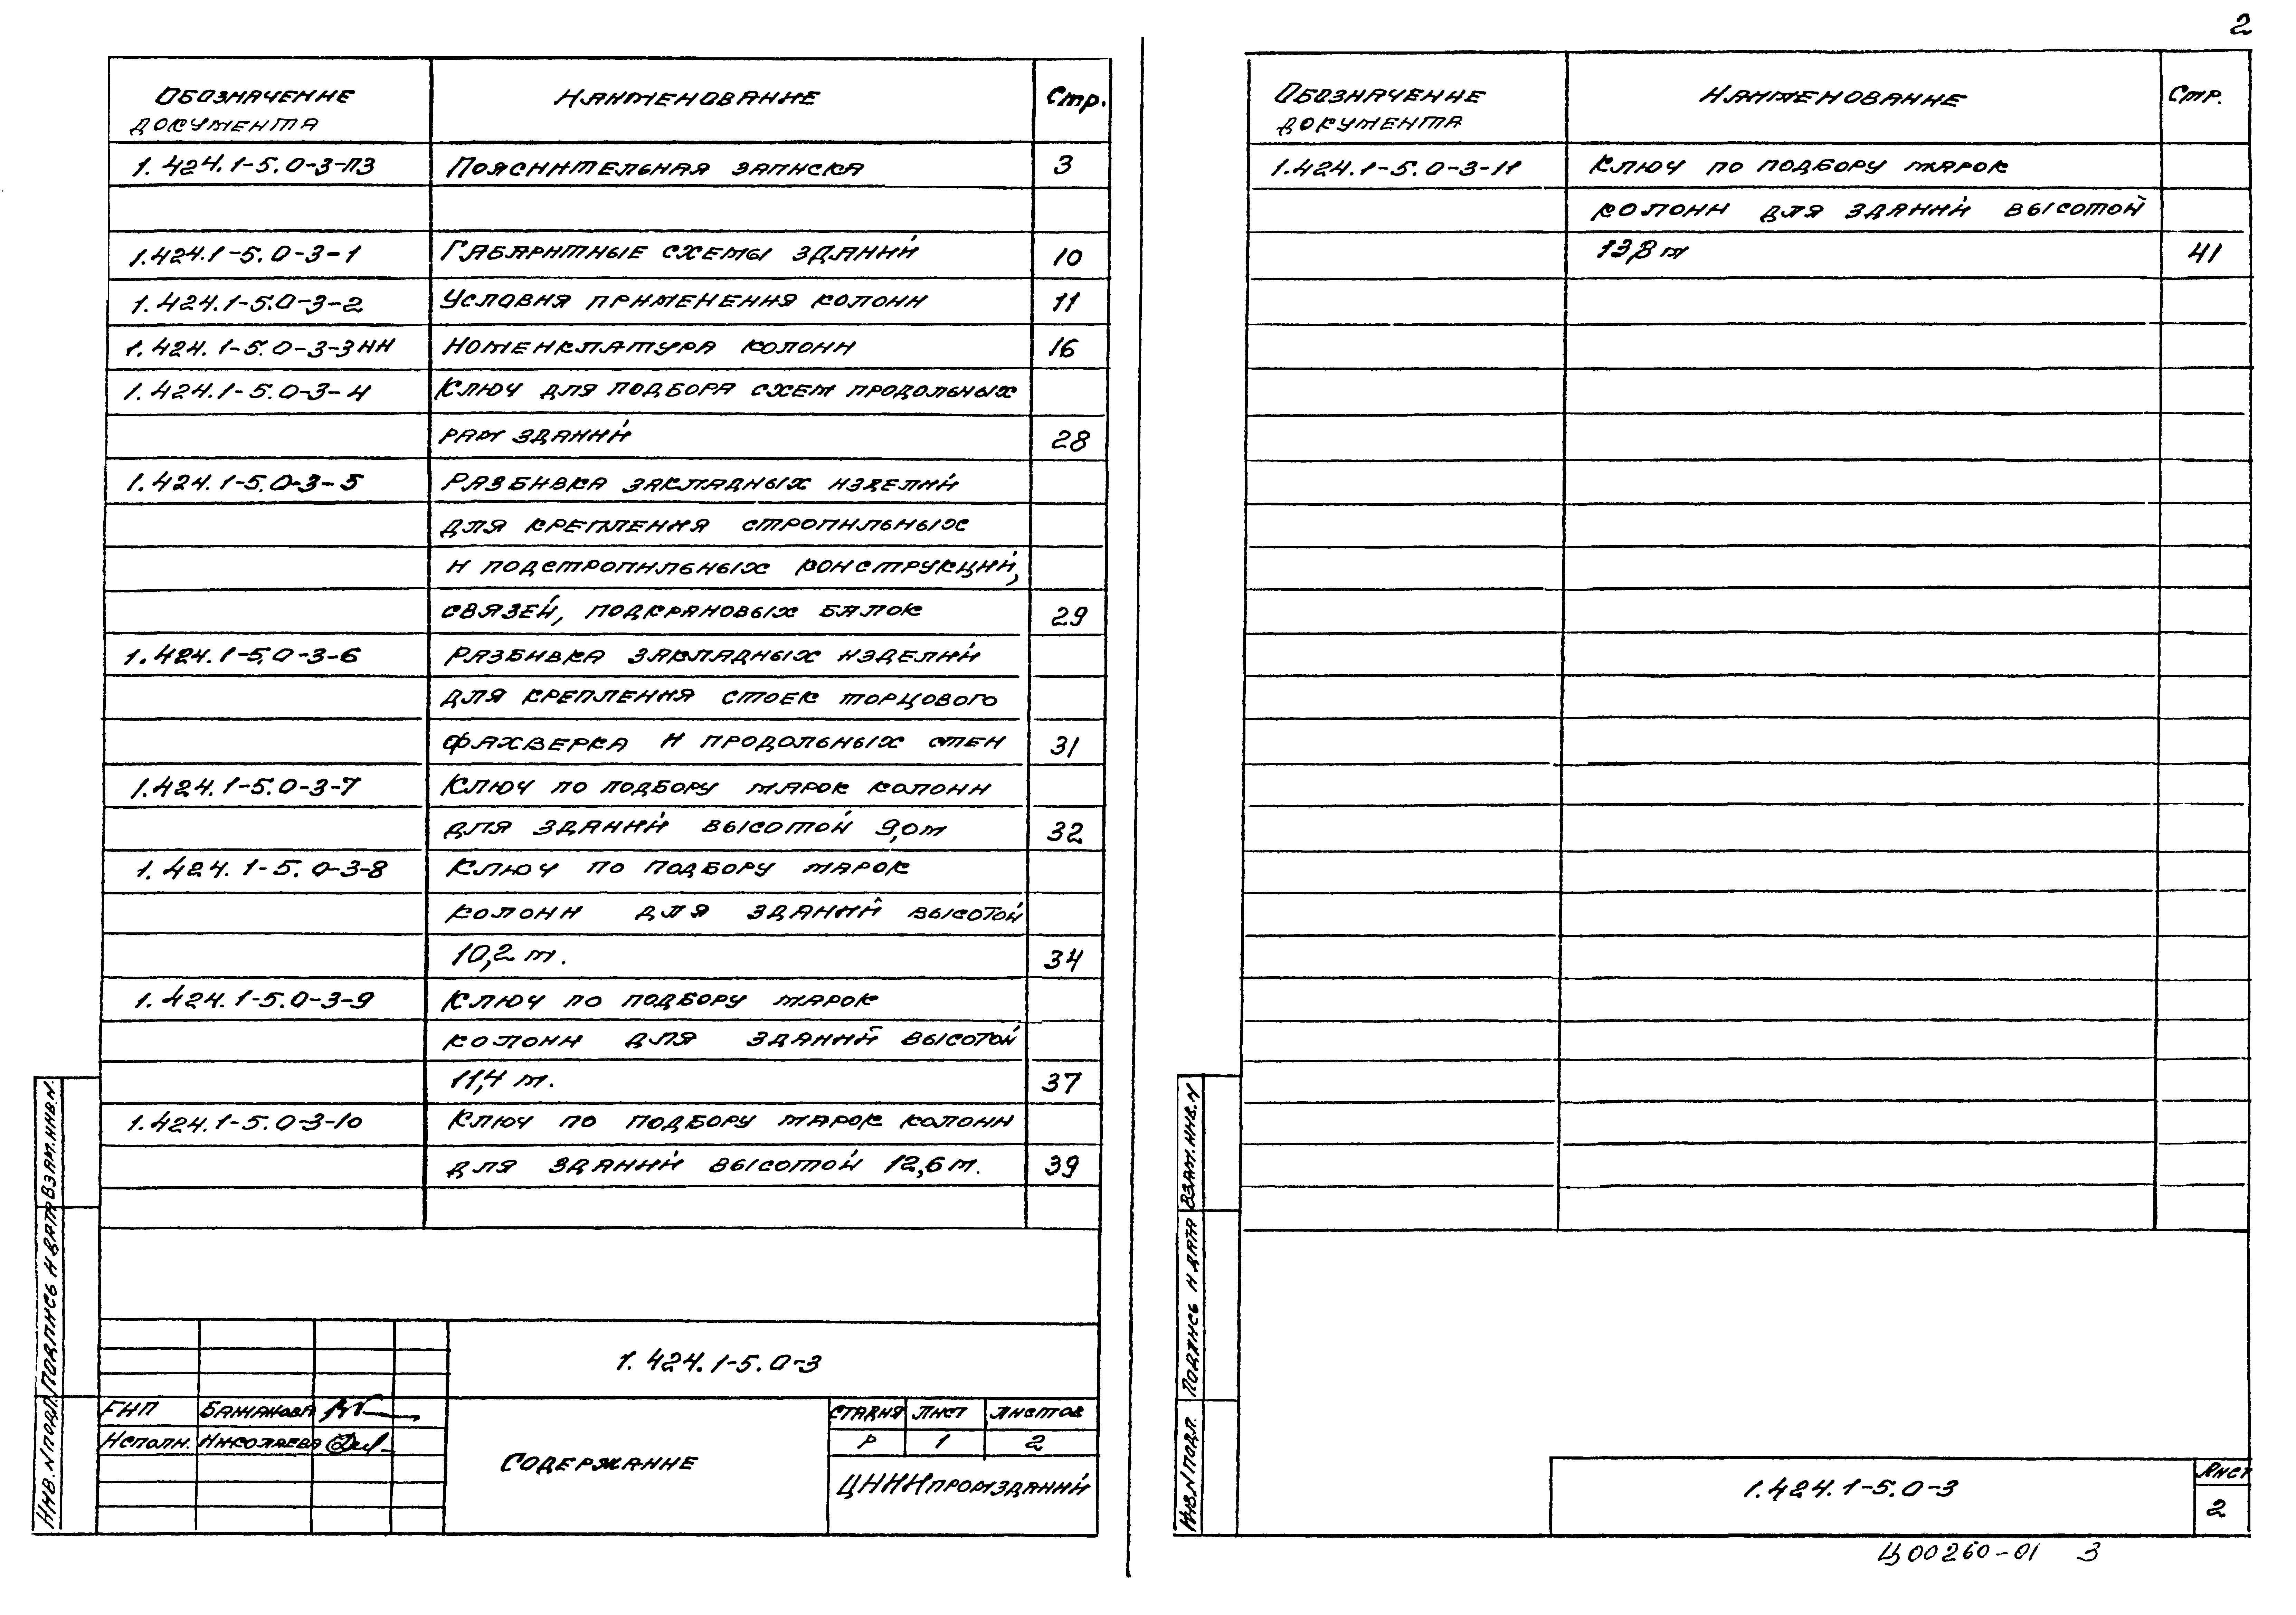 2
Обозначение документа Наименование Стр.
1.424.1-5.0-3-ПЗ Пояснительная записка 3
1.424.1-5.0-3-1 Габаритные схемы зданий 10
1.424.1-5.0-3-2 Условия применения колонн 11
1.424.1-5.0-3-3НИ Номенклатура колонн 16
1.424.1-5.0-3-4 Ключ для подбора схем продольных
рам зданий 28
1.424.1-5.0-3-5 Разбивка закладных изделий
для крепления стропильных
и подстропильных конструкций,
связей, подкрановых балок 29
1.424.1-5.0-3-6 Разбивка закладных изделий
для крепления стоек торцового
фахверка и продольных стен 31
1.424.1-5.0-3-7 Ключ по подбору марок колонн
для зданий высотой 9,0м 32
1.424.1-5.0-3-8 Ключ по подбору марок
колонн для зданий высотой
10,2 м. 34
1.424.1-5.0-3-9 Ключ по подбору марок
колонн для зданий высотой
11,4 м. 37
1.424.1-5.0-3-10 Ключ по подбору марок колонн
для зданий высотой 12,6 м. 39
1.424.1-5.0-3
ГИП Бажанова
Исполн. Николаева
Содержание
Стадия Лист Листов
Р 1 2
ЦНИИпромзданий
Инв. N подл. Подпись и дата Взам. инв. N.
Обозначение документа Наименование Стр.
1.424.1-5.0-3-11 Ключ по подбору марок
колонн для зданий высотой
13,8 м 41
Инв. N подл. Подпись и дата Взам. инв. N
1.424.1-5.0-3
Лист
2
Ц00260-01 3